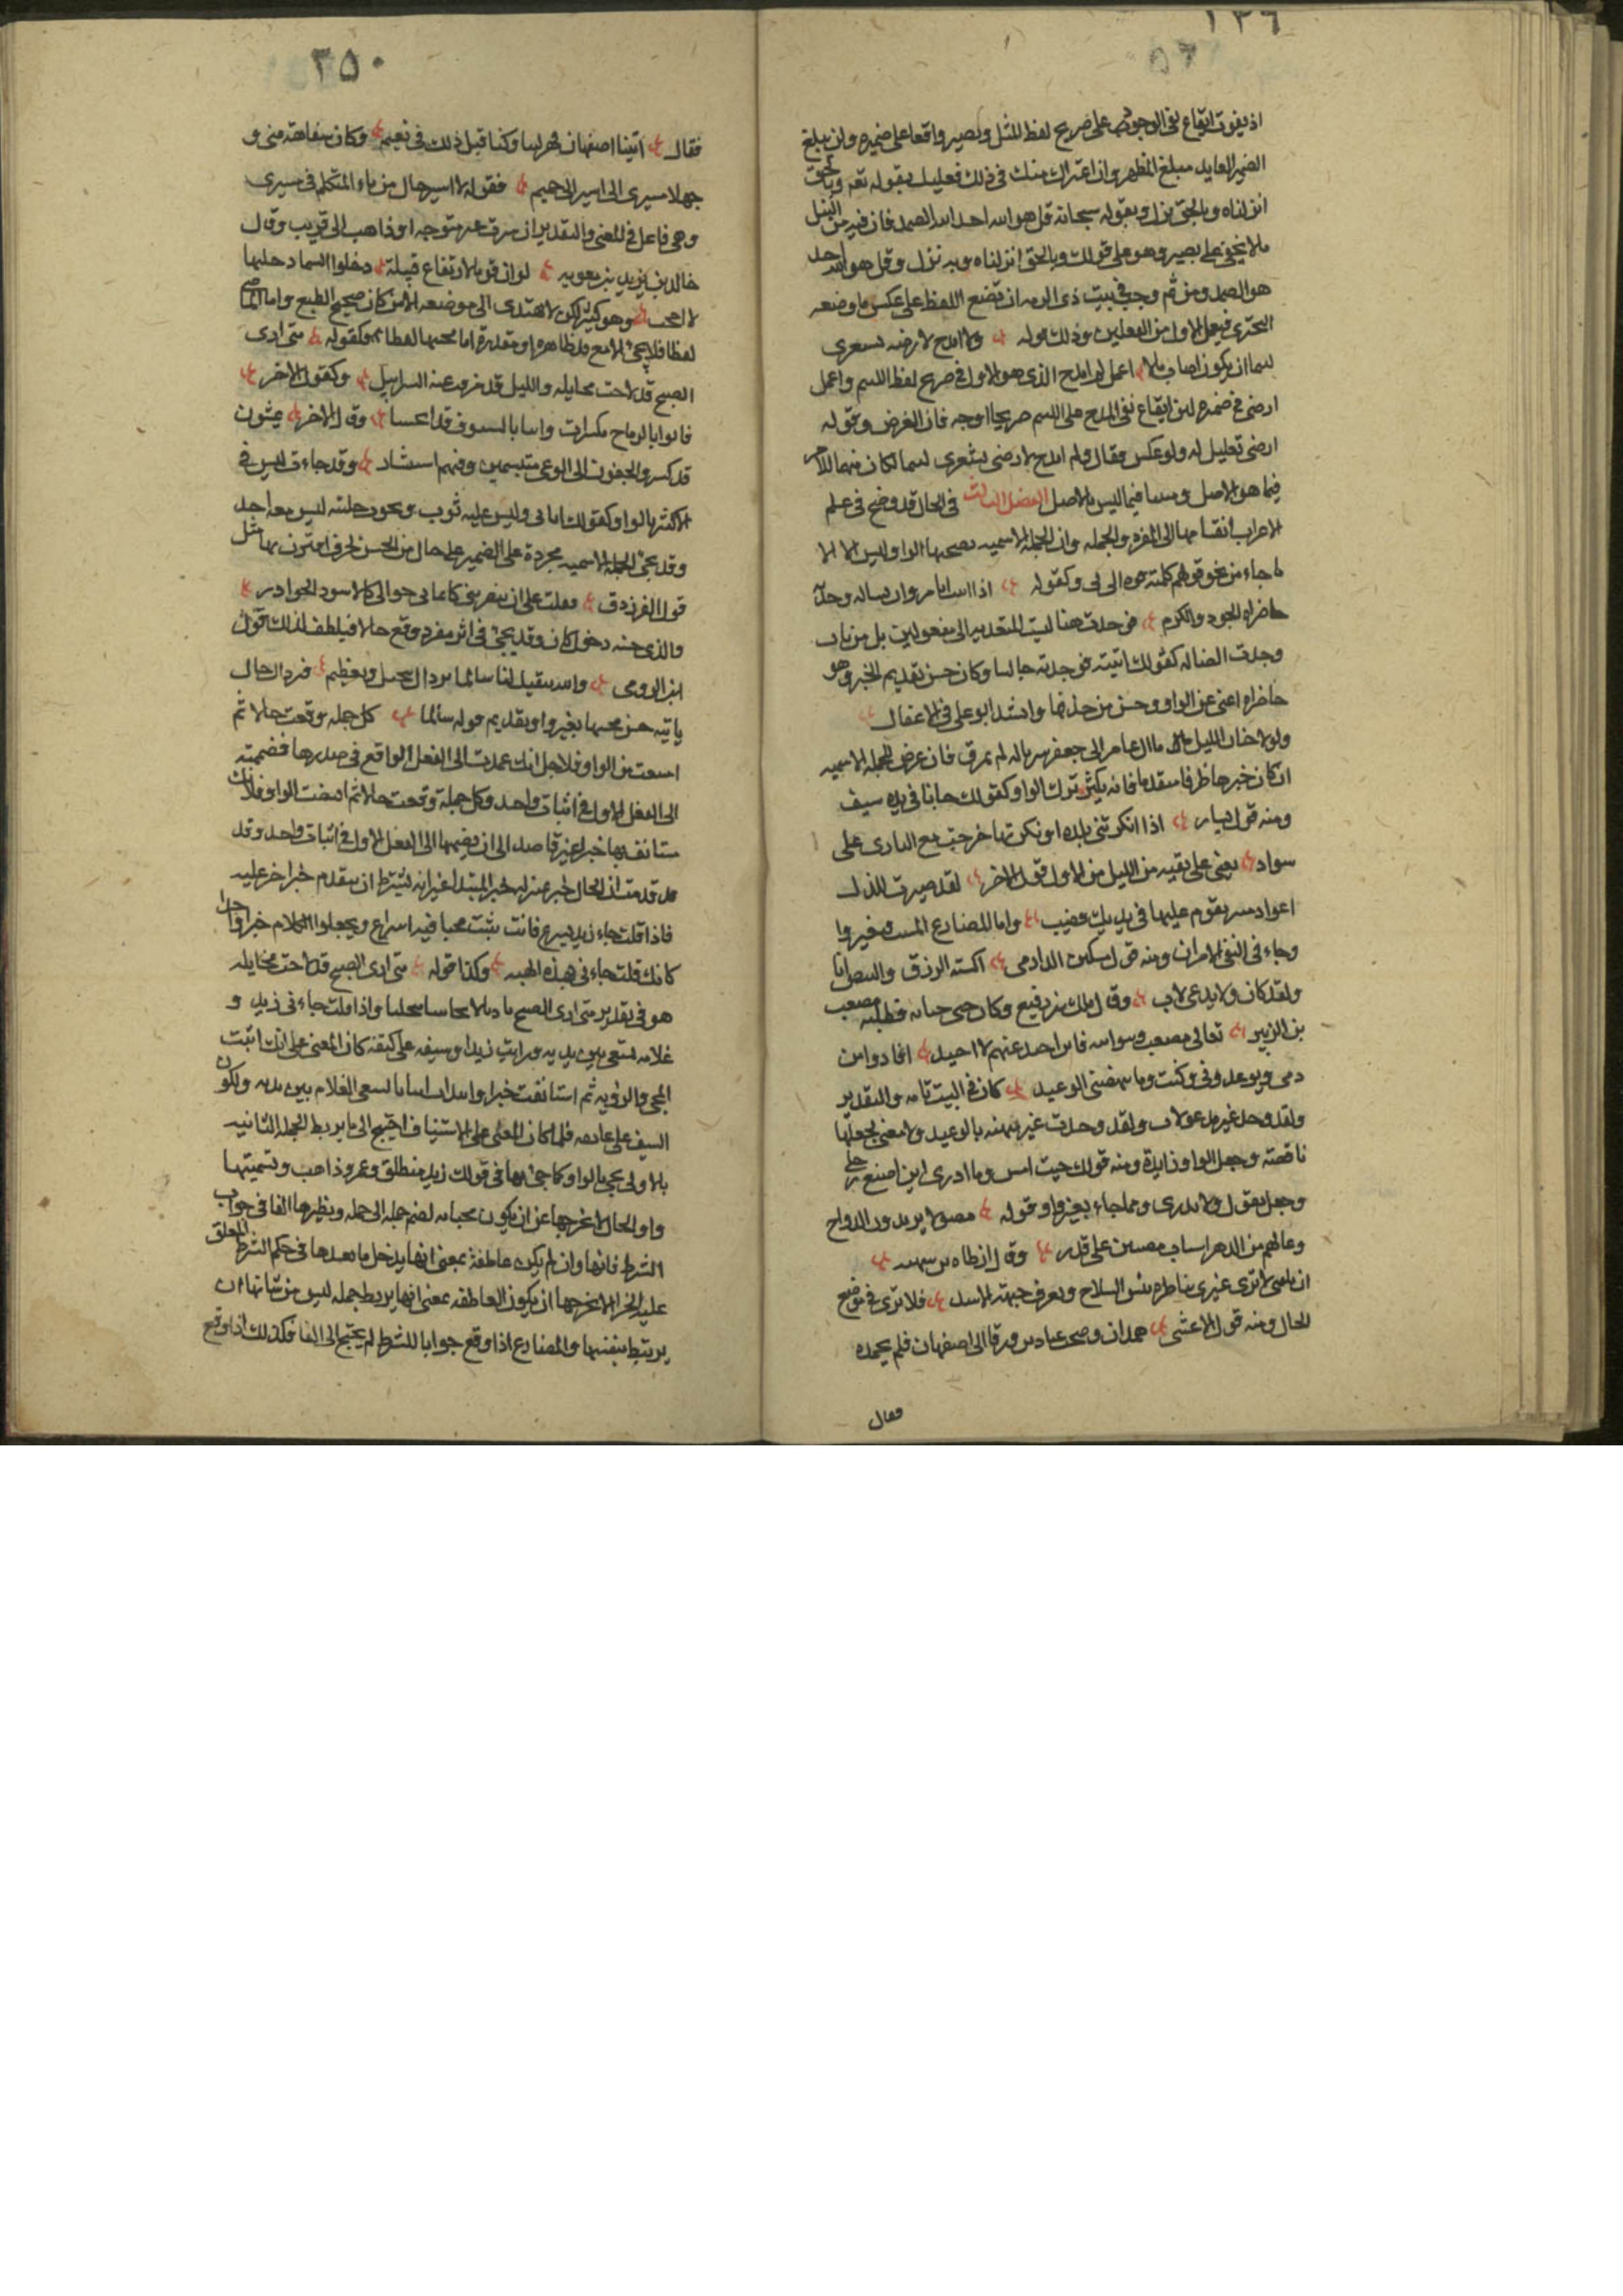 ١٣٦
٥٦
اذ يفوت ايقاع نفي الوجود على صريح لفظ المثل ويصير واقعا على ضميره ولن يبلغ
الضمير العايد مبلغ المظهر وان اعتراك شك في ذلك فعليك بقوله تعه وبالحق
انزلناه وبالحق نزل وبقوله سبحانه قل هو الله احد الله الصمد فان فيه من النبل
ما لا يخفى على بصير وهو على قولك وبالحق انزلناه وبه نزل وقل هو الله احد
هو الصمد ومن ثم وجب في بيت ذي الرمه ان تضع اللفظ على عكس ما وضعه
البحتري فيعمل الاول من الفعلين وذلك قوله ولم امدح لارضيه بشعري
لئيما ان يكون اصاب مالا اعمل لم امدح الذي هو الاول في صريح لفظ اللئيم واعمل
ارضى في ضميره لان ايقاع نفي المدح على اللئيم صريحا اوجه فان الغرض وقوله
ارضى تعليل له ولو عكس فقال ولم امدح لارضى بشعري لئيما لكان مبهما للامر
فيما هو الاصل ومبينا فيما ليس بالاصل الفصل الثالث في الحال قد وضح في علم
الاعراب انقسامها الى المفرد والجمله وان الجملة الاسميه يصحبها الواو وليس الا الا
ما جاء من نحو قولهم كلمته فوه الى في وكقوله اذا اتيت ابا مروان تساله وجدته
حاضراه الجود والكرم فوجدت هنا ليت المتعديه الى مفعولين بل من باب
وجدت الضاله كقولك اتيته فوجدته جالسا وكان حسن تقديم الخبر وهو
حاضراه اغنى عن الواو وحسن من حذفها وانشد ابو علي في الاغفال
ولولا جنان الليل ما آل عامر الى جعفر سرباله لم يمزق فان عرض للجملة الاسميه
ان كان خبرها ظرفا متقدما فانه يكثر ترك الواو كقولك جانا في يده سيف
ومنه قول بشار اذا انكرتني بلدة او نكرتها خرجت مع البازي على
سواد يعني على بقيه من الليل من الاول قول الاخر لقد صبرت للذل
اعواد منبر يقوم عليها في يديك قضيب واما المضارع المثبت فبغير واو
وجاء في النفي الامران ومنه قول مسكين الدارمي اكسبته الورق والبيض ابا
ولقد كان ولا يدعى لاب وقول ملك بن رفيع وكان جنى جنايه فطلبه مصعب
بن الزبير بغاني مصعب وبنو ابيه فاين احيد عنهم لا احيد اقادوا من
دمي وتوعدوني وكنت وما ينهنهني الوعيد كان في البيت تامه والتقدير
ولقد وجد غير مدعو لاب ولقد وجدت غير منهنه بالوعيد ولا معنى لجعلها
ناقصة وجعل الواو زايدة ومنه قولك جيت امس وما ادري اين اصنع رحلي
وجعل يقول ولا يدري ومما جاء بغير واو قوله مضوا لا يريدون الرواح
وغالهم من الدهر اسباب جرين على قدر وقول ارطاه بن سهيه
ان تلقني لا ترى غيري بناظرة تنس السلاح وتعرف جبهة الاسد فلا ترى في موضع
الحال ومنه قول الاعشى همدان وصحب عباد بن ورقا الى اصفهان فلم يحمده
فقال
٢٥٠
فقال اتينا اصفهان فهزلتنا وكنا قبل ذلك في نعيم وكان سفاهة مني و
جهلا مسيري لا اسير الى حميم فقوله لا اسير حال من ياء المتكلم في مسيري
وهي فاعل في المعنى والتقدير ان سرت غير متوجه او ذاهب الى قريب وقال
خالد بن يزيد بن معويه لو ان قوما لارتفاع قبيلة دخلوا السما دخلتها
لا احجب وهو كثير لكن لا يهتدي الى موضعه الا من كان صحيح الطبع واما الماضي
لفظا فلا يجئ الا مع قد ظاهره او مقدرة اما مجيها لفظا فكقوله متى ارى
الصبح قد لاحت مخايله والليل قد مزقت عنه السرابيل وكقول الاخر
فابوا بالرماح مكسرات وابنا بالسيوف قد انحنينا وقول الاخر يمشون
قد كسروا الجفون الى الوغى متبسمين وفيهم استبشار وقد جاءت ليس في
الاكثر بالواو كقولك اتاني وليس عليه ثوب ونحو دخلته ليس معه احد
وقد يجئ الجمله الاسميه مجردة على الضمير على حال من الحسن لحرف اقترن بها مثل
قول الفرزدق فقلت عسى ان تبصريني كانما بني حوالي الاسود الحوادر
والذي حسنه دخول كان وقد يجئ في اثر مفرد وقع حالا فيلطف لذلك قول
ابن الرومي والله يبقيك لنا سالما برداك تبجيل وتعظيم فبرداك حال
ثانيه حسن مجيها بغير واو تقديم قوله سالما كل جمله وقعت حالا ثم
امتنعت من الواو فلاجل انك عمدت الى الفعل الواقع في صدرها فضممته
الى الفعل الاول في اثبات واحد وكل جملة وقعت حالا ثم اقتضت الواو فلانك
مستانف بها خبرا غير قاصد الى ان تضمها الى الفعل الاول في اثبات واحد وقد
قد قدمت ان الحال خبر بمنزله خبر المبتدا غير انه يشترط ان يتقدم خبر اخر عليه
فاذا قلت جاء زيد يسرع فانت تثبت مجيا فيه اسراع ويجعلوا الكلام خبرا واحدا
كانك قلت جاءني بهذه الهيئه وكذا قوله متى ارى الصبح قد لاحت مخايله
هو في تقدير متى ارى الصبح باديا لايحا بينا متجليا واذا قلت جاءني زيد و
غلامه يسعى بين يديه ورايت زيدا وسيفه على كتفه كان المعنى على انك اثبت
المجي والرؤيه ثم استانفت خبرا وابتدات اثباتا لسعي الغلام بين يديه ولكون
السيف على عاتقه فلما كان المعنى على الاستيناف احتيج الى ما يربط الجمله الثانيه
بالاولى فجي بالواو كما جئ بها في قولك زيد منطلق وعمرو ذاهب وتسميتها
واو الحال لا يخرجها عن ان يكون مجتلبه لضم جمله الى جمله ونظيرها الفا في جواب
الشرط فانها وان لم يكن عاطفة بمعنى انها يدخل ما بعدها في حكم الشرط المعلق
عليه الجزا لا يخرجها ان يكون العاطفه بمعنى انها يربط جمله ليس من شانها ان
يرتبط بنفسها والمضارع اذا وقع جوابا للشرط لم يحتج الى الفا فكذلك اذا وقع